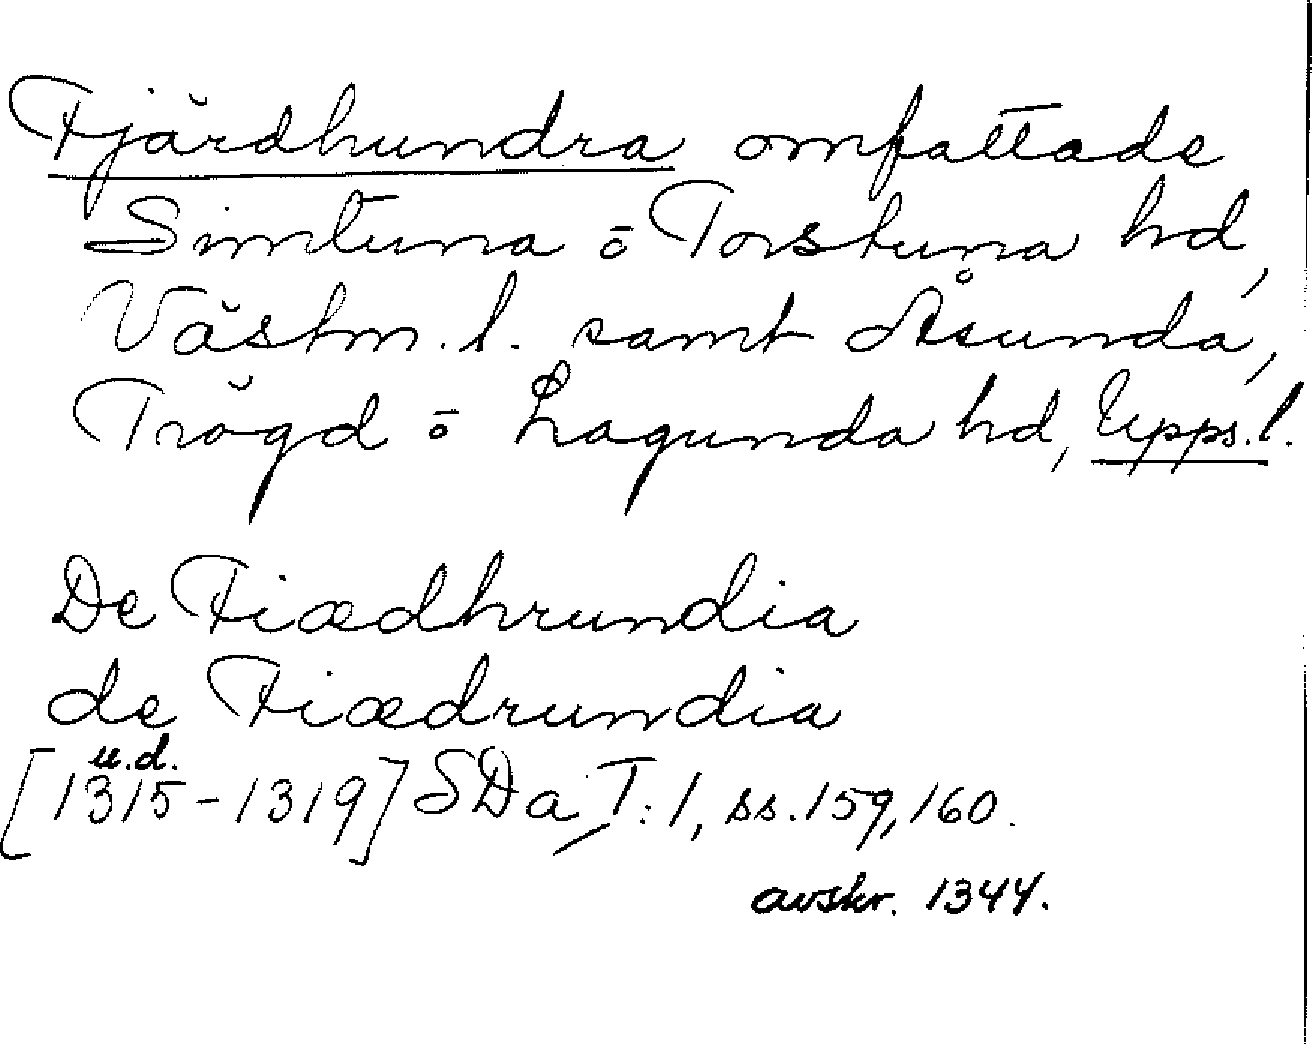 Fjärdhundra omfattade
Simtuna o Torstuna hd,
Västm. l. samt Åsunda,
Trögd o Lagunda hd, Upps. l.
De Fiædhrundia
de Fiædrundia
u.d.
[1315-1319] SDa, T: 1, ss. 159, 160.
avskr. 1344.